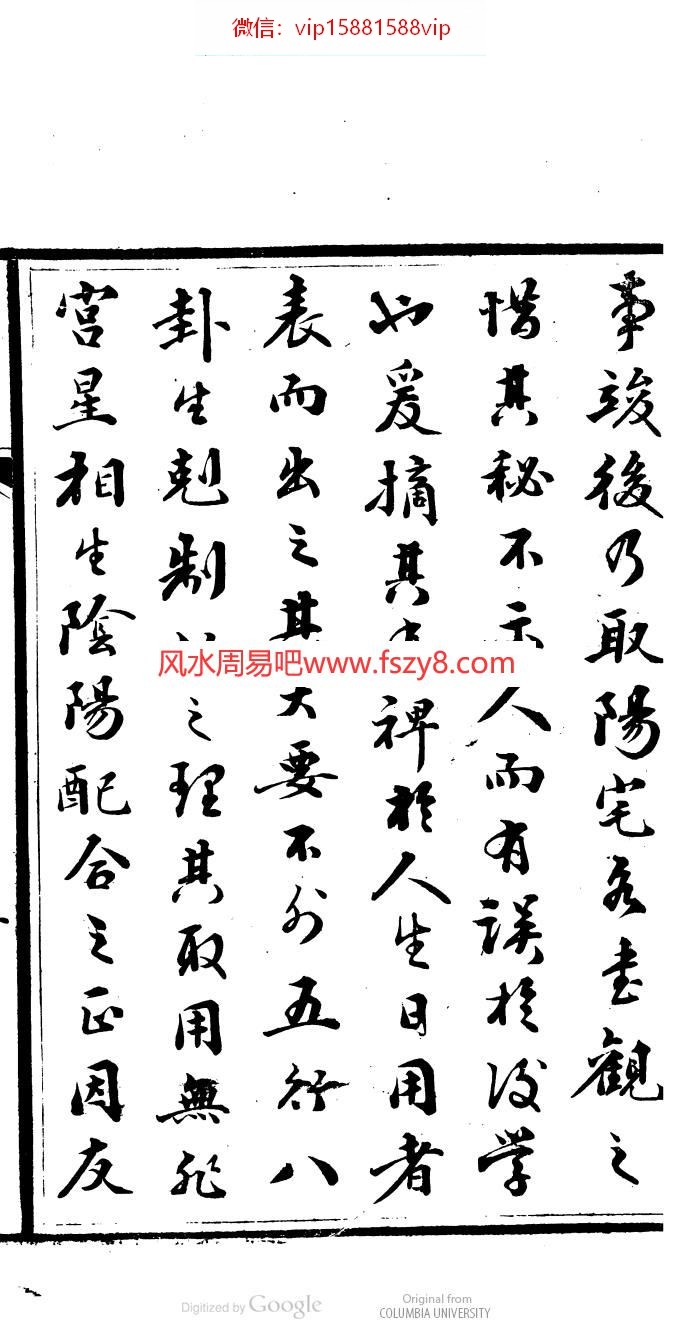 微信：vip15881588vip
事竣後乃取陽宅各書觀之
惜其秘不示人而有誤於後学
也爰摘其裨於人生日用者
表而出之其大要不外五行八
卦生剋制之理其取用無非
宮星相生陰陽配合之正因友
风水周易吧www.fszy8.com
Digitized by Google
Original from
COLUMBIA UNIVERSITY